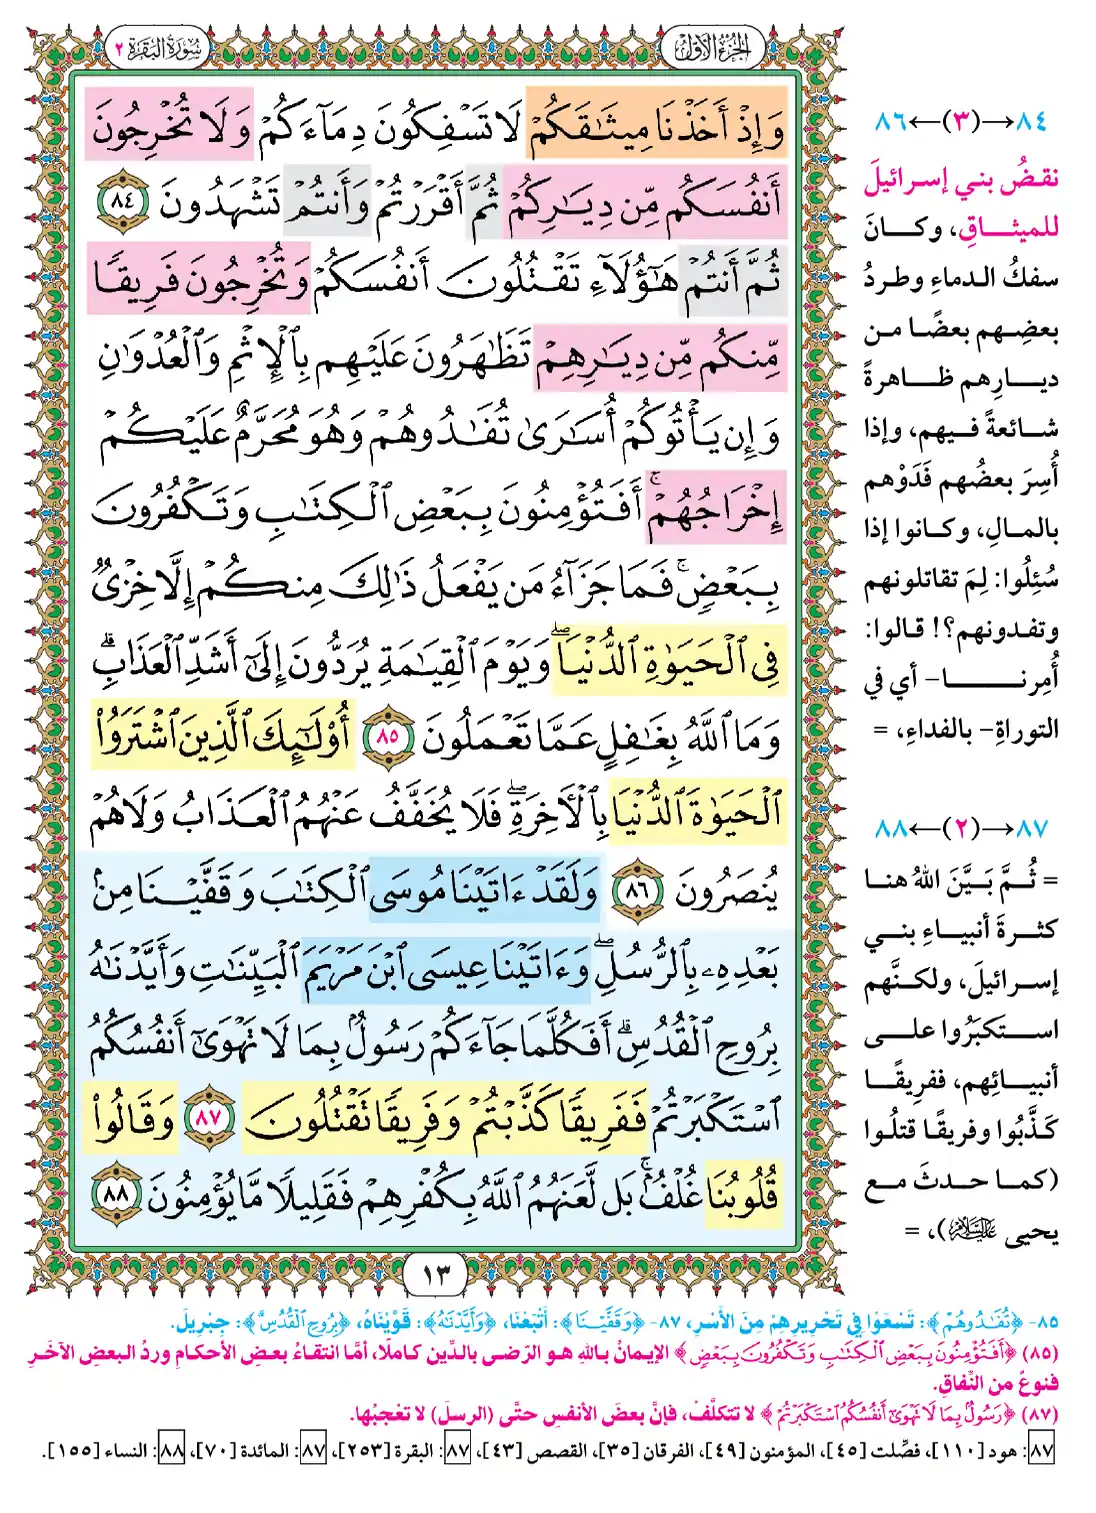 الجزء الأول
سورة البقرة ٢
وَإِذْ أَخَذْنَا مِيثَٰقَكُمْ لَا تَسْفِكُونَ دِمَآءَكُمْ وَلَا تُخْرِجُونَ
أَنفُسَكُم مِّن دِيَٰرِكُمْ ثُمَّ أَقْرَرْتُمْ وَأَنتُمْ تَشْهَدُونَ ٨٤
ثُمَّ أَنتُمْ هَٰٓؤُلَآءِ تَقْتُلُونَ أَنفُسَكُمْ وَتُخْرِجُونَ فَرِيقًا
مِّنكُم مِّن دِيَٰرِهِمْ تَظَٰهَرُونَ عَلَيْهِم بِٱلْإِثْمِ وَٱلْعُدْوَٰنِ
وَإِن يَأْتُوكُمْ أُسَٰرَىٰ تُفَٰدُوهُمْ وَهُوَ مُحَرَّمٌ عَلَيْكُمْ
إِخْرَاجُهُمْ ۚ أَفَتُؤْمِنُونَ بِبَعْضِ ٱلْكِتَٰبِ وَتَكْفُرُونَ
بِبَعْضٍ ۚ فَمَا جَزَآءُ مَن يَفْعَلُ ذَٰلِكَ مِنكُمْ إِلَّا خِزْىٌ
فِى ٱلْحَيَوٰةِ ٱلدُّنْيَا ۖ وَيَوْمَ ٱلْقِيَٰمَةِ يُرَدُّونَ إِلَىٰٓ أَشَدِّ ٱلْعَذَابِ ۗ
وَمَا ٱللَّهُ بِغَٰفِلٍ عَمَّا تَعْمَلُونَ ٨٥ أُو۟لَٰٓئِكَ ٱلَّذِينَ ٱشْتَرَوُا۟
ٱلْحَيَوٰةَ ٱلدُّنْيَا بِٱلْءَاخِرَةِ ۖ فَلَا يُخَفَّفُ عَنْهُمُ ٱلْعَذَابُ وَلَا هُمْ
يُنصَرُونَ ٨٦ وَلَقَدْ ءَاتَيْنَا مُوسَى ٱلْكِتَٰبَ وَقَفَّيْنَا مِنۢ
بَعْدِهِۦ بِٱلرُّسُلِ ۖ وَءَاتَيْنَا عِيسَى ٱبْنَ مَرْيَمَ ٱلْبَيِّنَٰتِ وَأَيَّدْنَٰهُ
بِرُوحِ ٱلْقُدُسِ ۗ أَفَكُلَّمَا جَآءَكُمْ رَسُولٌۢ بِمَا لَا تَهْوَىٰٓ أَنفُسُكُمُ
ٱسْتَكْبَرْتُمْ فَفَرِيقًا كَذَّبْتُمْ وَفَرِيقًا تَقْتُلُونَ ٨٧ وَقَالُوا۟
قُلُوبُنَا غُلْفٌۢ ۚ بَل لَّعَنَهُمُ ٱللَّهُ بِكُفْرِهِمْ فَقَلِيلًا مَّا يُؤْمِنُونَ ٨٨
١٣
٨٤→(٣)←٨٦
نقضُ بني إسرائيلَ
للميثاقِ، وكانَ
سفكُ الدماءِ وطردُ
بعضِهم بعضًا من
ديارِهم ظاهرةً
شائعةً فيهم، وإذا
أُسِرَ بعضُهم فَدَوْهم
بالمالِ، وكانوا إذا
سُئِلُوا: لِمَ تقاتلونهم
وتفدونهم؟! قالوا:
أُمِرنا- أي في
التوراةِ- بالفداءِ، =
٨٧→(٢)←٨٨
= ثُمَّ بَيَّنَ اللهُ هنا
كثرةَ أنبياءِ بني
إسرائيلَ، ولكنَّهم
استكبَرُوا على
أنبيائِهم، ففريقًا
كَذَّبُوا وفريقًا قتلُوا
(كما حدثَ مع
يحيى عليه السلام)، =
٨٥- ﴿تُفَٰدُوهُمْ﴾: تَسْعَوْا فِي تَحْرِيرِهِمْ مِنَ الأَسْرِ، ٨٧- ﴿وَقَفَّيْنَا﴾: أَتْبَعْنَا، ﴿وَأَيَّدْنَٰهُ﴾: قَوَّيْنَاهُ، ﴿بِرُوحِ ٱلْقُدُسِ﴾: جِبْرِيلَ.
(٨٥) ﴿أَفَتُؤْمِنُونَ بِبَعْضِ ٱلْكِتَٰبِ وَتَكْفُرُونَ بِبَعْضٍ﴾ الإيمانُ باللهِ هو الرّضى بالدِّين كاملًا، أمَّا انتقاءُ بعضِ الأحكامِ وردُّ البعضِ الآخَرِ
فنوعٌ من النِّفاقِ.
(٨٧) ﴿رَسُولٌۢ بِمَا لَا تَهْوَىٰٓ أَنفُسُكُمُ ٱسْتَكْبَرْتُمْ﴾ لا تتكلَّفْ، فإنَّ بعضَ الأنفسِ حتَّى (الرسلَ) لا تعْجبُها.
٨٧: هود [١١٠]، فصِّلت [٤٥]، المؤمنون [٤٩]، الفرقان [٣٥]، القصص [٤٣]، ٨٧: البقرة [٢٥٣]، ٨٧: المائدة [٧٠]، ٨٨: النساء [١٥٥].